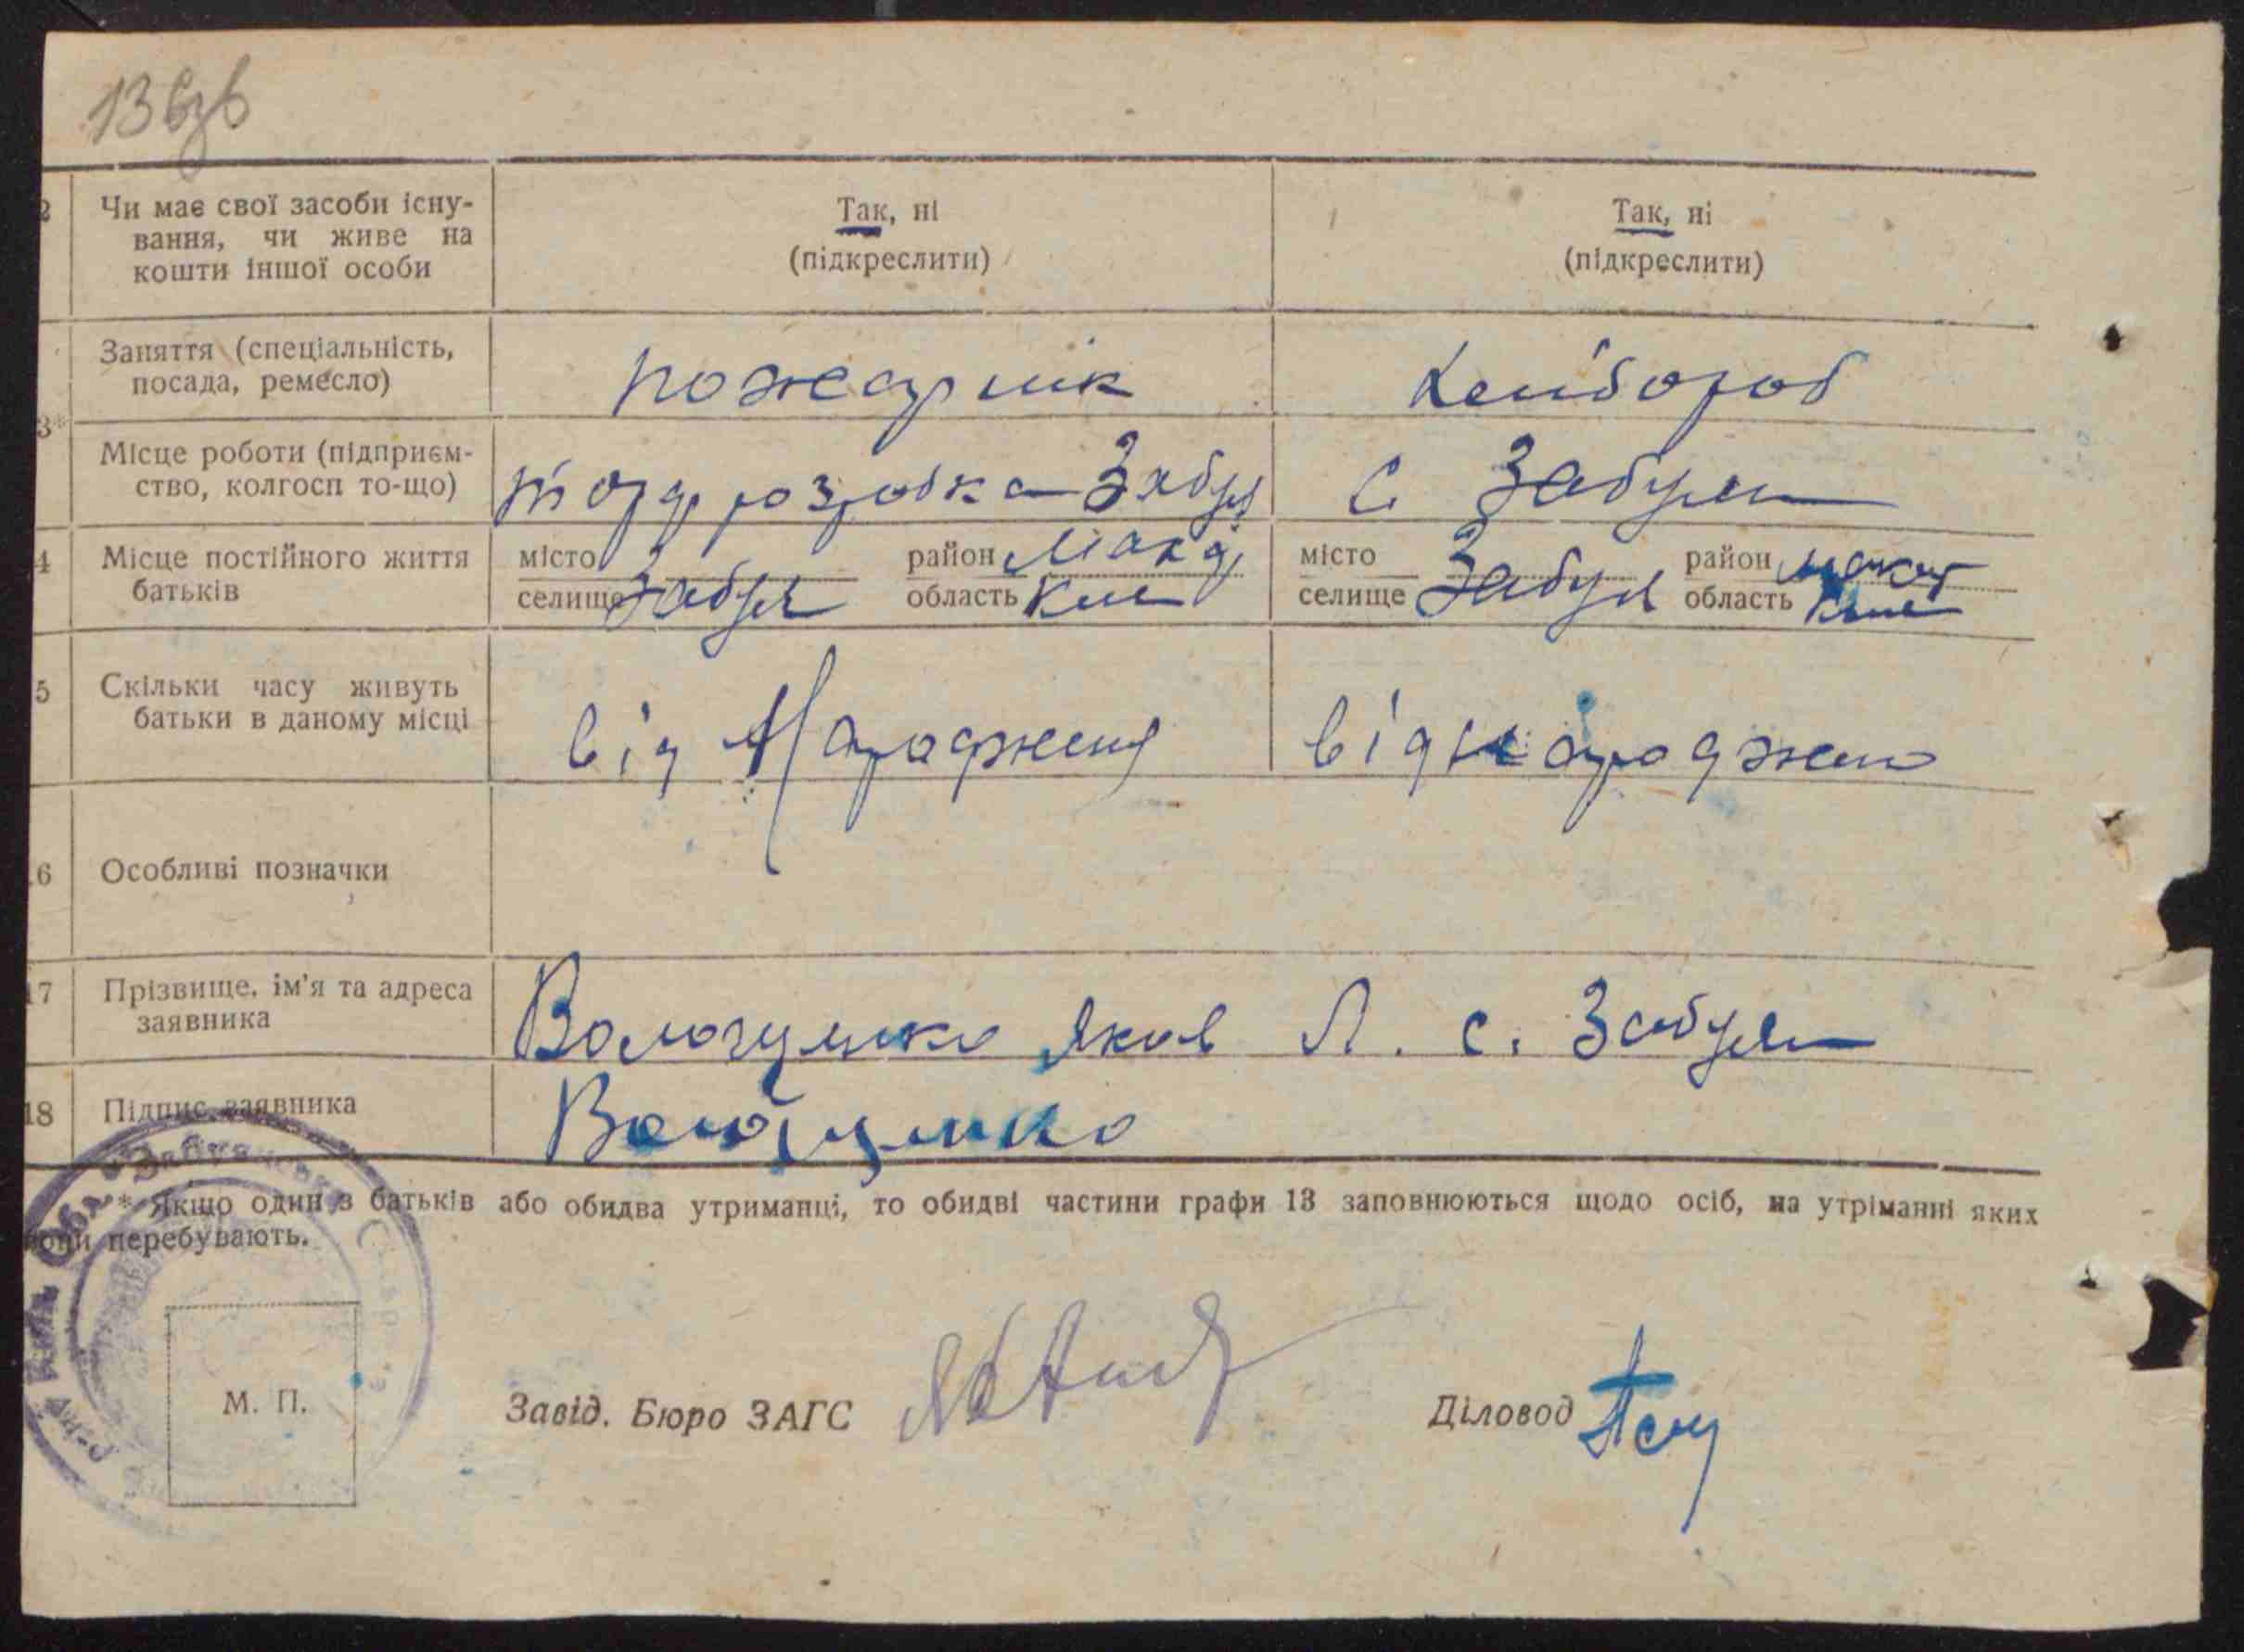 13 взв
2 Чи має свої засоби існу-
вання, чи живе на
кошти іншої особи
Так, ні
(підкреслити)
Так, ні
(підкреслити)
3*
Заняття (спеціальність,
посада, ремесло)
пожарнік
хлібороб
Місце роботи (підприєм-
ство, колгосп то-що)
торфрозробка Забуя
с Забуян
4 Місце постійного життя
батьків
місто
селище Забуя
район Макар
область Київ
місто
селище Забуя
район Макар
область Київ
5 Скільки часу живуть
батьки в даному місці
від Народженя
від народженя
6 Особливі позначки
17 Прізвище, ім'я та адреса
заявника
Яков Л. с. Забуян
18 Підпис заявника
* Якщо один з батьків або обидва утриманці, то обидві частини графи 13 заповнюються щодо осіб, на утріманні яких
вони перебувають.
М. П.
Завід. Бюро ЗАГС
Діловод